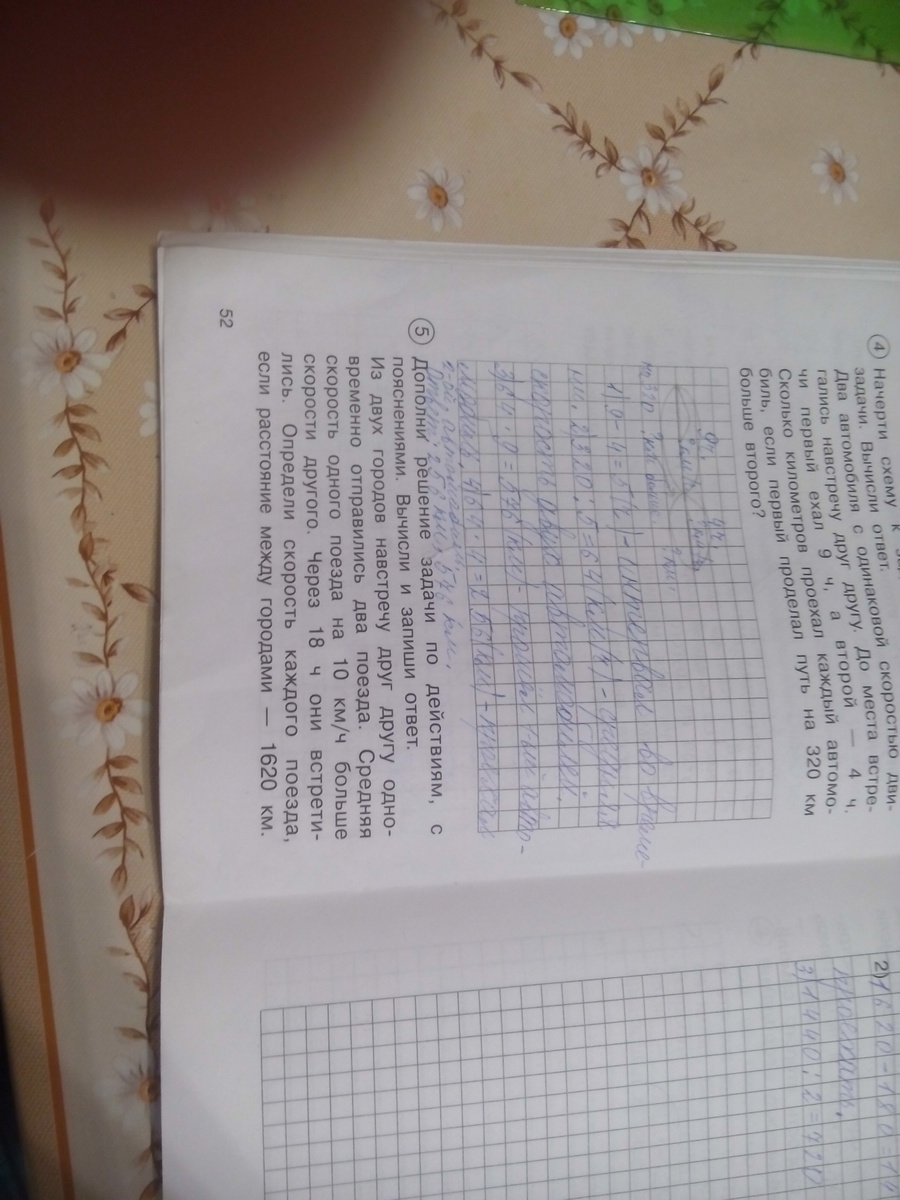 4 Начерти схему к
задачи. Вычисли ответ.
Два автомобиля с одинаковой скоростью дви-
гались навстречу друг другу. До места встре-
чи первый ехал 9 ч, а второй — 4 ч.
Сколько километров проехал каждый автомо-
биль, если первый проделал путь на 320 км
больше второго?
9ч. 4ч.
на 320 ? км
1) 9 - 4 = 5 (ч) - интервал во време-
ни. 2) 320 : 5 = 64 (км/ч) -
скорость двух автомобилей.
3) 64 · 9 = 576 (км) -
4) 64 · 4 = 256 (км) -
Ответ: 256 км, 576 км.
5 Дополни решение задачи по действиям, с
пояснениями. Вычисли и запиши ответ.
Из двух городов навстречу друг другу одно-
временно отправились два поезда. Средняя
скорость одного поезда на 10 км/ч больше
скорости другого. Через 18 ч они встрети-
лись. Определи скорость каждого поезда,
если расстояние между городами — 1620 км.
52
2) 1620 - 180 = 14
проехат,
3) 1440 : 2 = 720